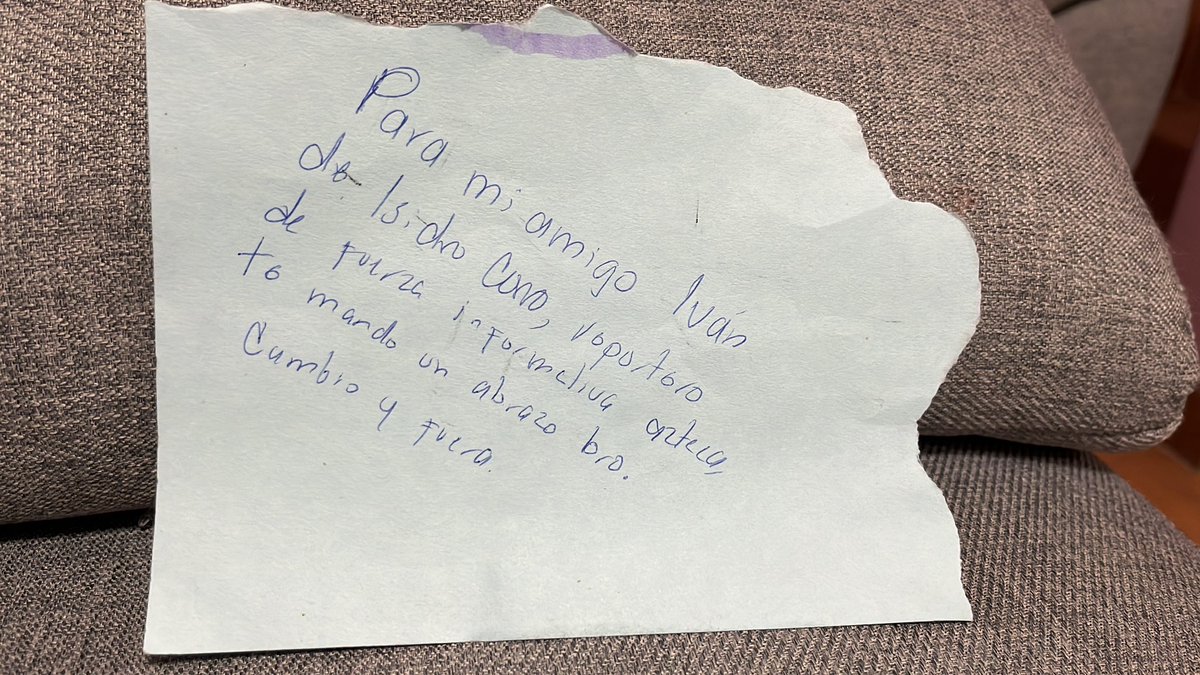 Para mi amigo Iván
de Isidro Corro, reportero
de Fuerza informativa azteca,
te mando un abrazo bro.
Cambio y fuera.